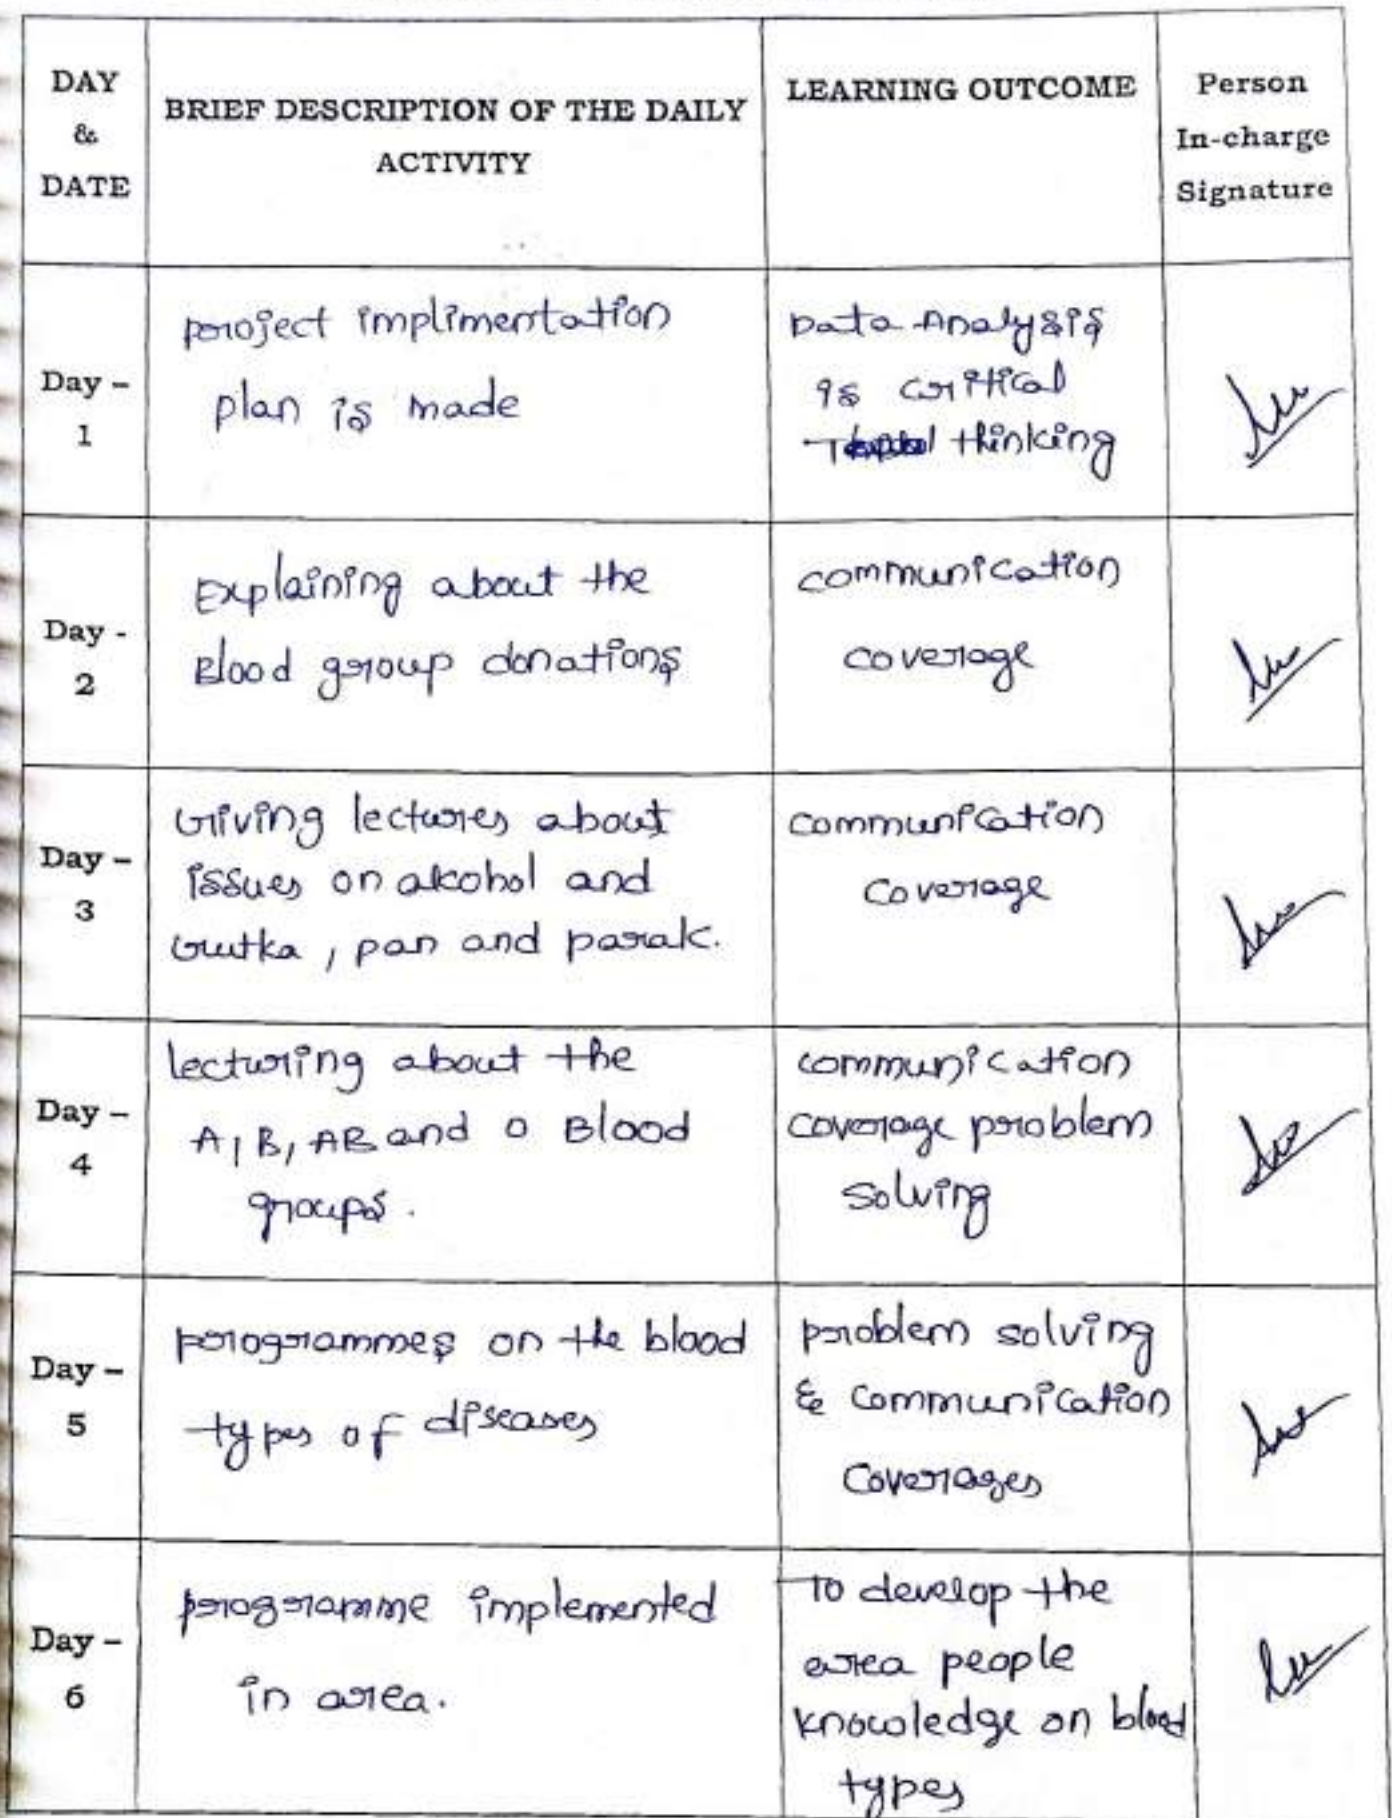 DAY
&
DATE
BRIEF DESCRIPTION OF THE DAILY
ACTIVITY
LEARNING OUTCOME
Person
In-charge
Signature
Day –
1
project implimentation
plan is made
Data Analysis
is critical
thinking
Day -
2
Explaining about the
Blood group donations
communication
coverage
Day –
3
Giving lectures about
issues on alcohol and
Gutka, pan and parak.
communication
coverage
Day –
4
lecturing about the
A, B, AB and O Blood
groups.
communication
coverage problem
solving
Day –
5
programmes on the blood
types of diseases
problem solving
& communication
coverages
Day –
6
programme implemented
in area.
To develop the
area people
knowledge on blood
types